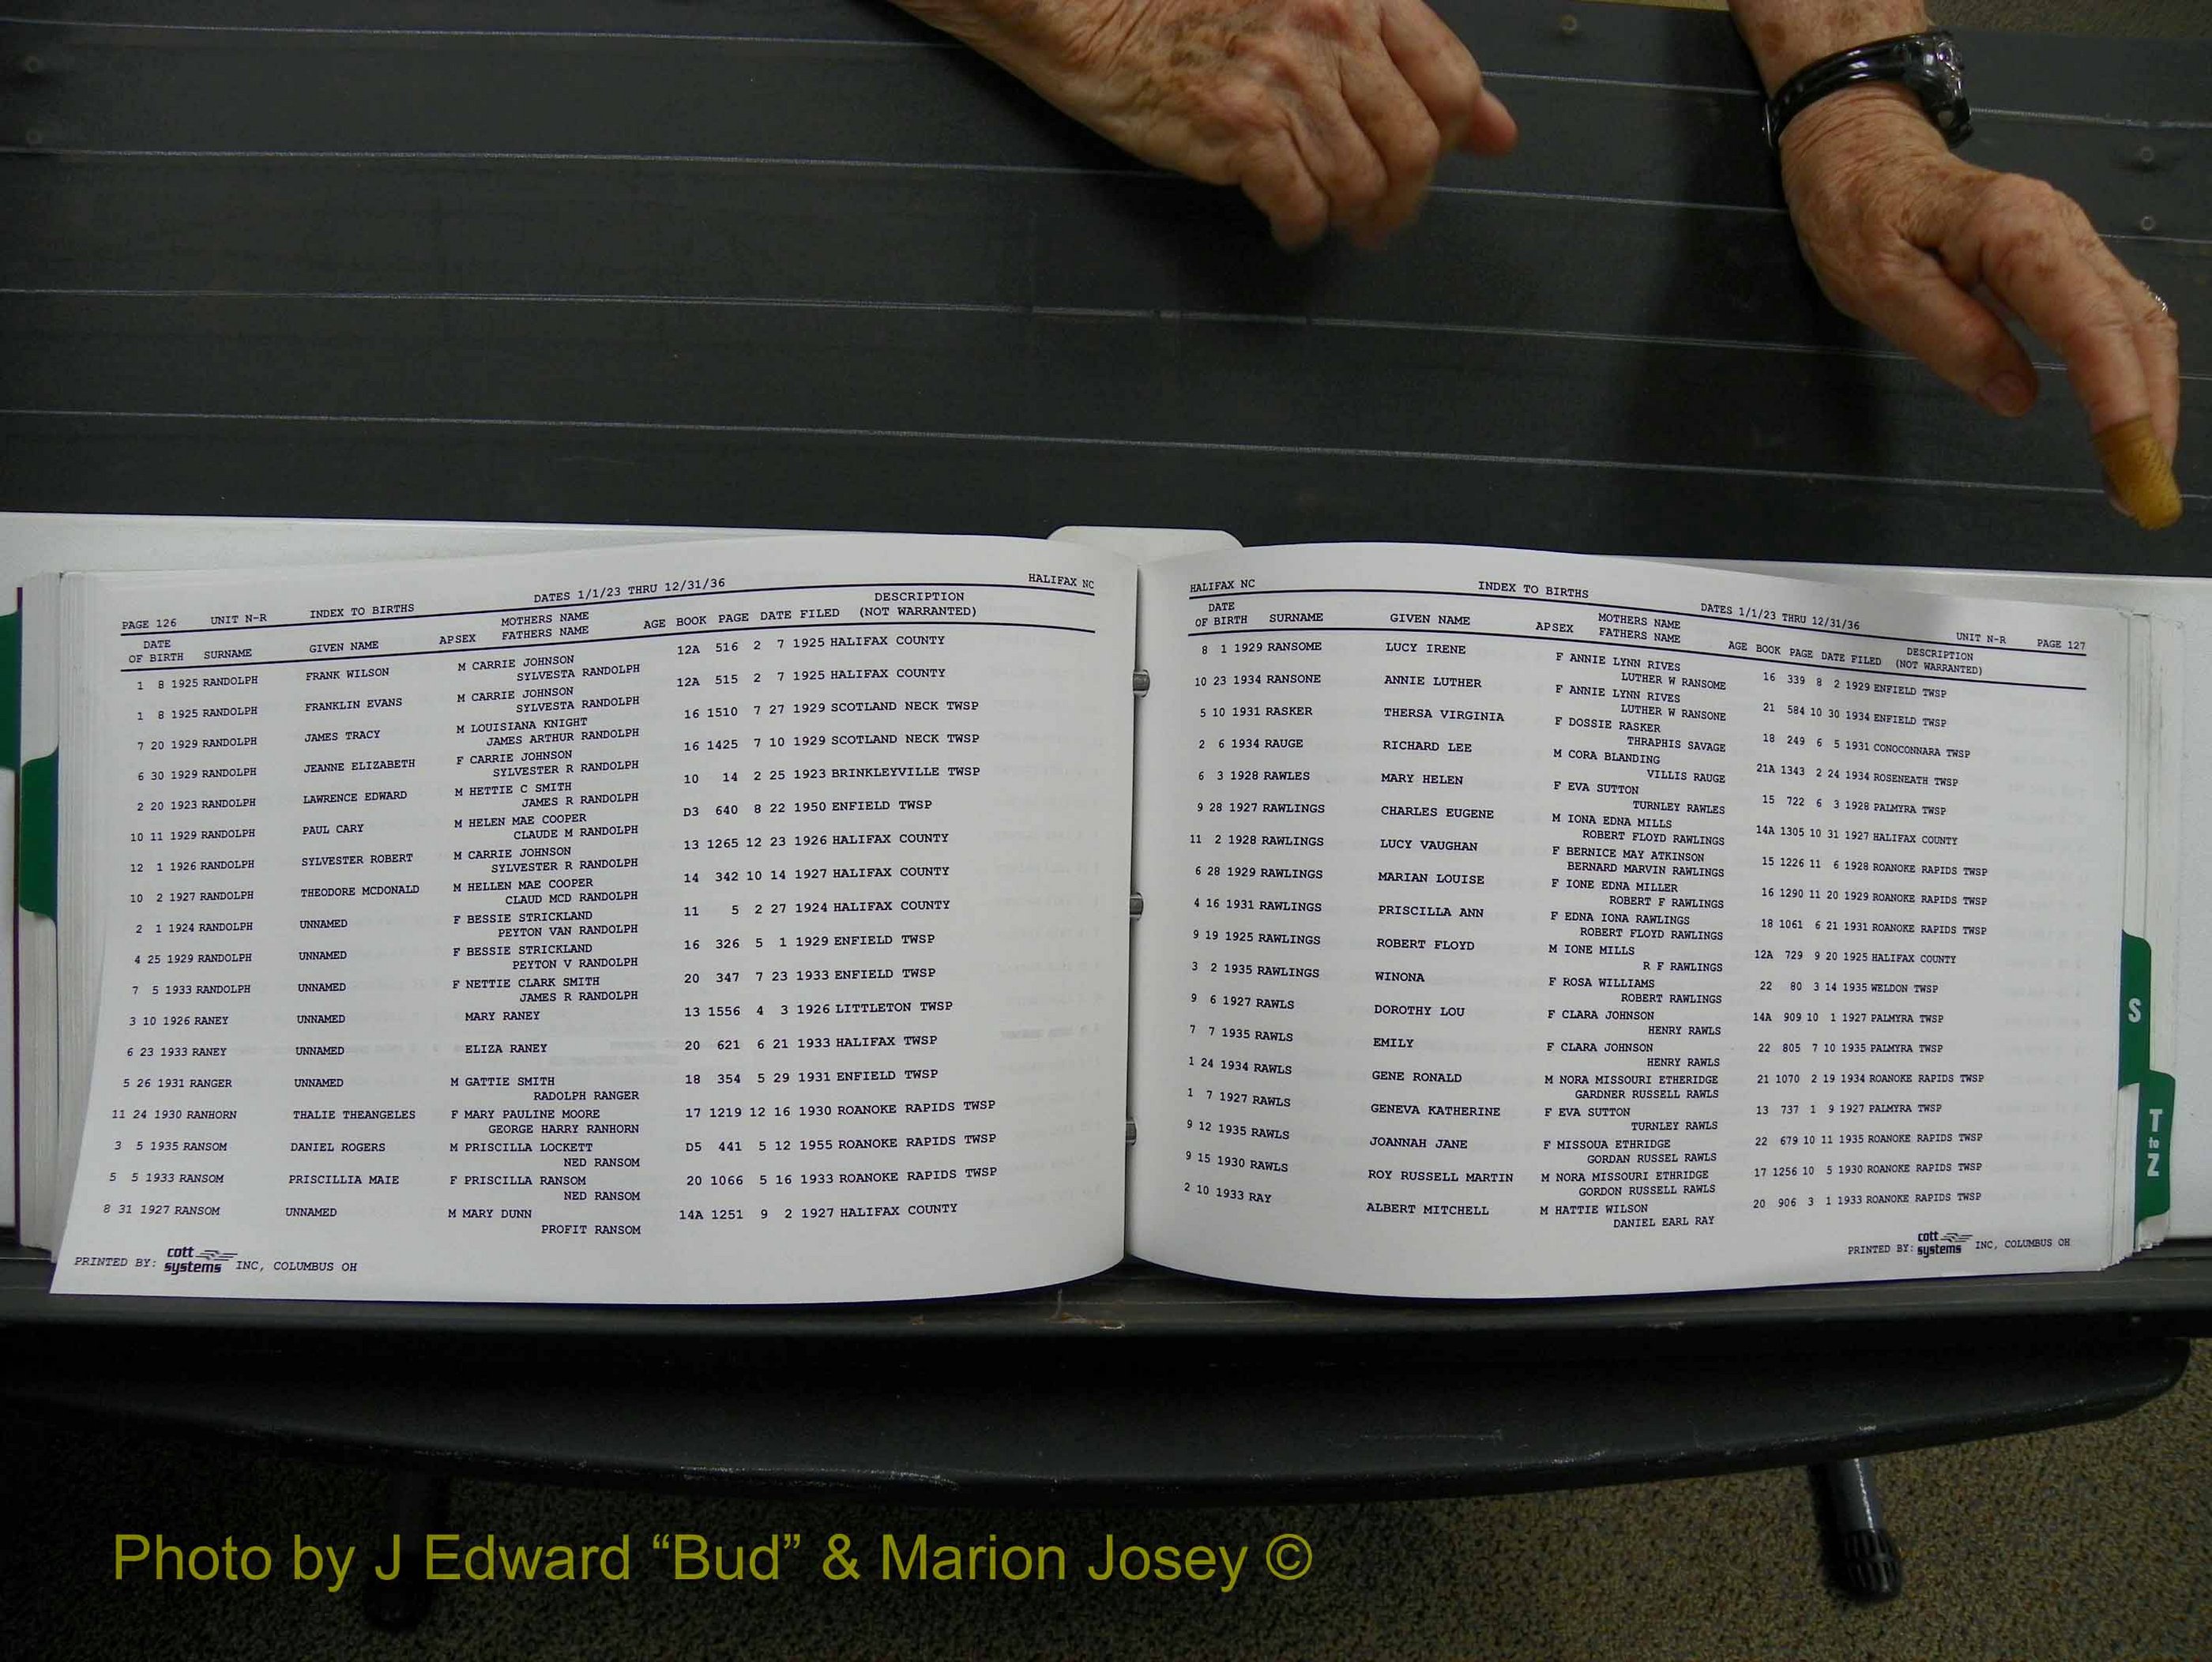 PAGE 126 UNIT N-R INDEX TO BIRTHS DATES 1/1/23 THRU 12/31/36 HALIFAX NC
DATE OF BIRTH SURNAME GIVEN NAME AP SEX MOTHERS NAME FATHERS NAME AGE BOOK PAGE DATE FILED DESCRIPTION (NOT WARRANTED)
1 8 1925 RANDOLPH FRANK WILSON M CARRIE JOHNSON 12A 516 2 7 1925 HALIFAX COUNTY
SYLVESTA RANDOLPH
1 8 1925 RANDOLPH FRANKLIN EVANS M CARRIE JOHNSON 12A 515 2 7 1925 HALIFAX COUNTY
SYLVESTA RANDOLPH
7 20 1929 RANDOLPH JAMES TRACY M LOUISIANA KNIGHT 16 1510 7 27 1929 SCOTLAND NECK TWSP
JAMES ARTHUR RANDOLPH
6 30 1929 RANDOLPH JEANNE ELIZABETH F CARRIE JOHNSON 16 1425 7 10 1929 SCOTLAND NECK TWSP
SYLVESTER R RANDOLPH
2 20 1923 RANDOLPH LAWRENCE EDWARD M HETTIE C SMITH 10 14 2 25 1923 BRINKLEYVILLE TWSP
JAMES R RANDOLPH
10 11 1929 RANDOLPH PAUL CARY M HELEN MAE COOPER D3 640 8 22 1950 ENFIELD TWSP
CLAUDE M RANDOLPH
12 1 1926 RANDOLPH SYLVESTER ROBERT M CARRIE JOHNSON 13 1265 12 23 1926 HALIFAX COUNTY
SYLVESTER R RANDOLPH
10 2 1927 RANDOLPH THEODORE MCDONALD M HELLEN MAE COOPER 14 342 10 14 1927 HALIFAX COUNTY
CLAUD MCD RANDOLPH
2 1 1924 RANDOLPH UNNAMED F BESSIE STRICKLAND 11 5 2 27 1924 HALIFAX COUNTY
PEYTON VAN RANDOLPH
4 25 1929 RANDOLPH UNNAMED F BESSIE STRICKLAND 16 326 5 1 1929 ENFIELD TWSP
PEYTON V RANDOLPH
7 5 1933 RANDOLPH UNNAMED F NETTIE CLARK SMITH 20 347 7 23 1933 ENFIELD TWSP
JAMES R RANDOLPH
3 10 1926 RANEY UNNAMED MARY RANEY 13 1556 4 3 1926 LITTLETON TWSP
6 23 1933 RANEY UNNAMED ELIZA RANEY 20 621 6 21 1933 HALIFAX TWSP
5 26 1931 RANGER UNNAMED M GATTIE SMITH 18 354 5 29 1931 ENFIELD TWSP
RADOLPH RANGER
11 24 1930 RANHORN THALIE THEANGELES F MARY PAULINE MOORE 17 1219 12 16 1930 ROANOKE RAPIDS TWSP
GEORGE HARRY RANHORN
3 5 1935 RANSOM DANIEL ROGERS M PRISCILLA LOCKETT D5 441 5 12 1955 ROANOKE RAPIDS TWSP
NED RANSOM
5 5 1933 RANSOM PRISCILLIA MAIE F PRISCILLA RANSOM 20 1066 5 16 1933 ROANOKE RAPIDS TWSP
NED RANSOM
8 31 1927 RANSOM UNNAMED M MARY DUNN 14A 1251 9 2 1927 HALIFAX COUNTY
PROFIT RANSOM
PRINTED BY: cott systems INC, COLUMBUS OH
HALIFAX NC INDEX TO BIRTHS DATES 1/1/23 THRU 12/31/36 UNIT N-R PAGE 127
DATE OF BIRTH SURNAME GIVEN NAME AP SEX MOTHERS NAME FATHERS NAME AGE BOOK PAGE DATE FILED DESCRIPTION (NOT WARRANTED)
8 1 1929 RANSOME LUCY IRENE F ANNIE LYNN RIVES 16 339 8 2 1929 ENFIELD TWSP
LUTHER W RANSOME
10 23 1934 RANSONE ANNIE LUTHER F ANNIE LYNN RIVES 21 584 10 30 1934 ENFIELD TWSP
LUTHER W RANSONE
5 10 1931 RASKER THERSA VIRGINIA F DOSSIE RASKER 18 249 6 5 1931 CONOCONNARA TWSP
THRAPHIS SAVAGE
2 6 1934 RAUGE RICHARD LEE M CORA BLANDING 21A 1343 2 24 1934 ROSENEATH TWSP
VILLIS RAUGE
6 3 1928 RAWLES MARY HELEN F EVA SUTTON 15 722 6 3 1928 PALMYRA TWSP
TURNLEY RAWLES
9 28 1927 RAWLINGS CHARLES EUGENE M IONA EDNA MILLS 14A 1305 10 31 1927 HALIFAX COUNTY
ROBERT FLOYD RAWLINGS
11 2 1928 RAWLINGS LUCY VAUGHAN F BERNICE MAY ATKINSON 15 1226 11 6 1928 ROANOKE RAPIDS TWSP
BERNARD MARVIN RAWLINGS
6 28 1929 RAWLINGS MARIAN LOUISE F IONE EDNA MILLER 16 1290 11 20 1929 ROANOKE RAPIDS TWSP
ROBERT F RAWLINGS
4 16 1931 RAWLINGS PRISCILLA ANN F EDNA IONA RAWLINGS 18 1061 6 21 1931 ROANOKE RAPIDS TWSP
ROBERT FLOYD RAWLINGS
9 19 1925 RAWLINGS ROBERT FLOYD M IONE MILLS 12A 729 9 20 1925 HALIFAX COUNTY
R F RAWLINGS
3 2 1935 RAWLINGS WINONA F ROSA WILLIAMS 22 80 3 14 1935 WELDON TWSP
ROBERT RAWLINGS
9 6 1927 RAWLS DOROTHY LOU F CLARA JOHNSON 14A 909 10 1 1927 PALMYRA TWSP
HENRY RAWLS
7 7 1935 RAWLS EMILY F CLARA JOHNSON 22 805 7 10 1935 PALMYRA TWSP
HENRY RAWLS
1 24 1934 RAWLS GENE RONALD M NORA MISSOURI ETHERIDGE 21 1070 2 19 1934 ROANOKE RAPIDS TWSP
GARDNER RUSSELL RAWLS
1 7 1927 RAWLS GENEVA KATHERINE F EVA SUTTON 13 737 1 9 1927 PALMYRA TWSP
TURNLEY RAWLS
9 12 1935 RAWLS JOANNAH JANE F MISSOUA ETHRIDGE 22 679 10 11 1935 ROANOKE RAPIDS TWSP
GORDAN RUSSEL RAWLS
9 15 1930 RAWLS ROY RUSSELL MARTIN M NORA MISSOURI ETHRIDGE 17 1256 10 5 1930 ROANOKE RAPIDS TWSP
GORDON RUSSELL RAWLS
2 10 1933 RAY ALBERT MITCHELL M HATTIE WILSON 20 906 3 1 1933 ROANOKE RAPIDS TWSP
DANIEL EARL RAY
PRINTED BY: cott systems INC, COLUMBUS OH
S
T to Z
Photo by J Edward “Bud” & Marion Josey ©